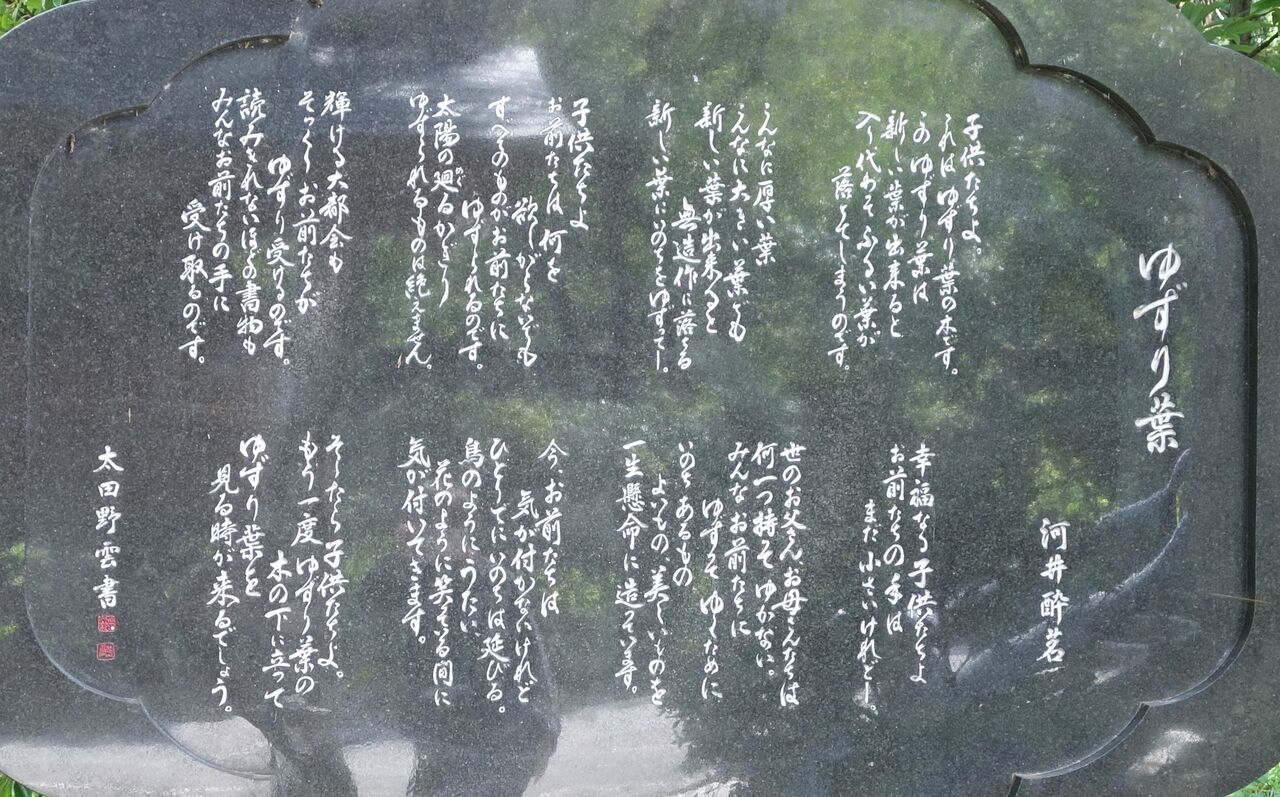 ゆずり葉
河井酔茗
子供たちよ。
これはゆずり葉の木です。
このゆずり葉は
新しい葉が出来ると
入り代わってふるい葉が
落ちてしまうのです。
こんなに厚い葉
こんなに大きい葉でも
新しい葉が出来ると
無造作に落ちる
新しい葉にいのちをゆずって―。
子供たちよ
お前たちは何を
欲しがらないでも
すべてのものがお前たちに
ゆずられるのです。
太陽の廻るかぎり
ゆずられるものは絶えません。
輝ける大都会も
そっくりお前たちが
ゆずり受けるのです。
読みきれないほどの書物も
みんなお前たちの手に
受け取るのです。
幸福なる子供たちよ
お前たちの手は
まだ小さいけれど―。
世のお父さん、お母さんたちは
何一つ持ってゆかない。
みんなお前たちに
ゆずってゆくために
いのちあるもの
よいもの、美しいものを
一生懸命に造っています。
今、お前たちは
気が付かないけれど
ひとりでにいのちは延びる。
鳥のようにうたい
花のように笑っている間に
気が付いてきます。
そしたら子供たちよ。
もう一度ゆずり葉の
木の下に立って
ゆずり葉を
見る時が来るでしょう。
太田野雲書